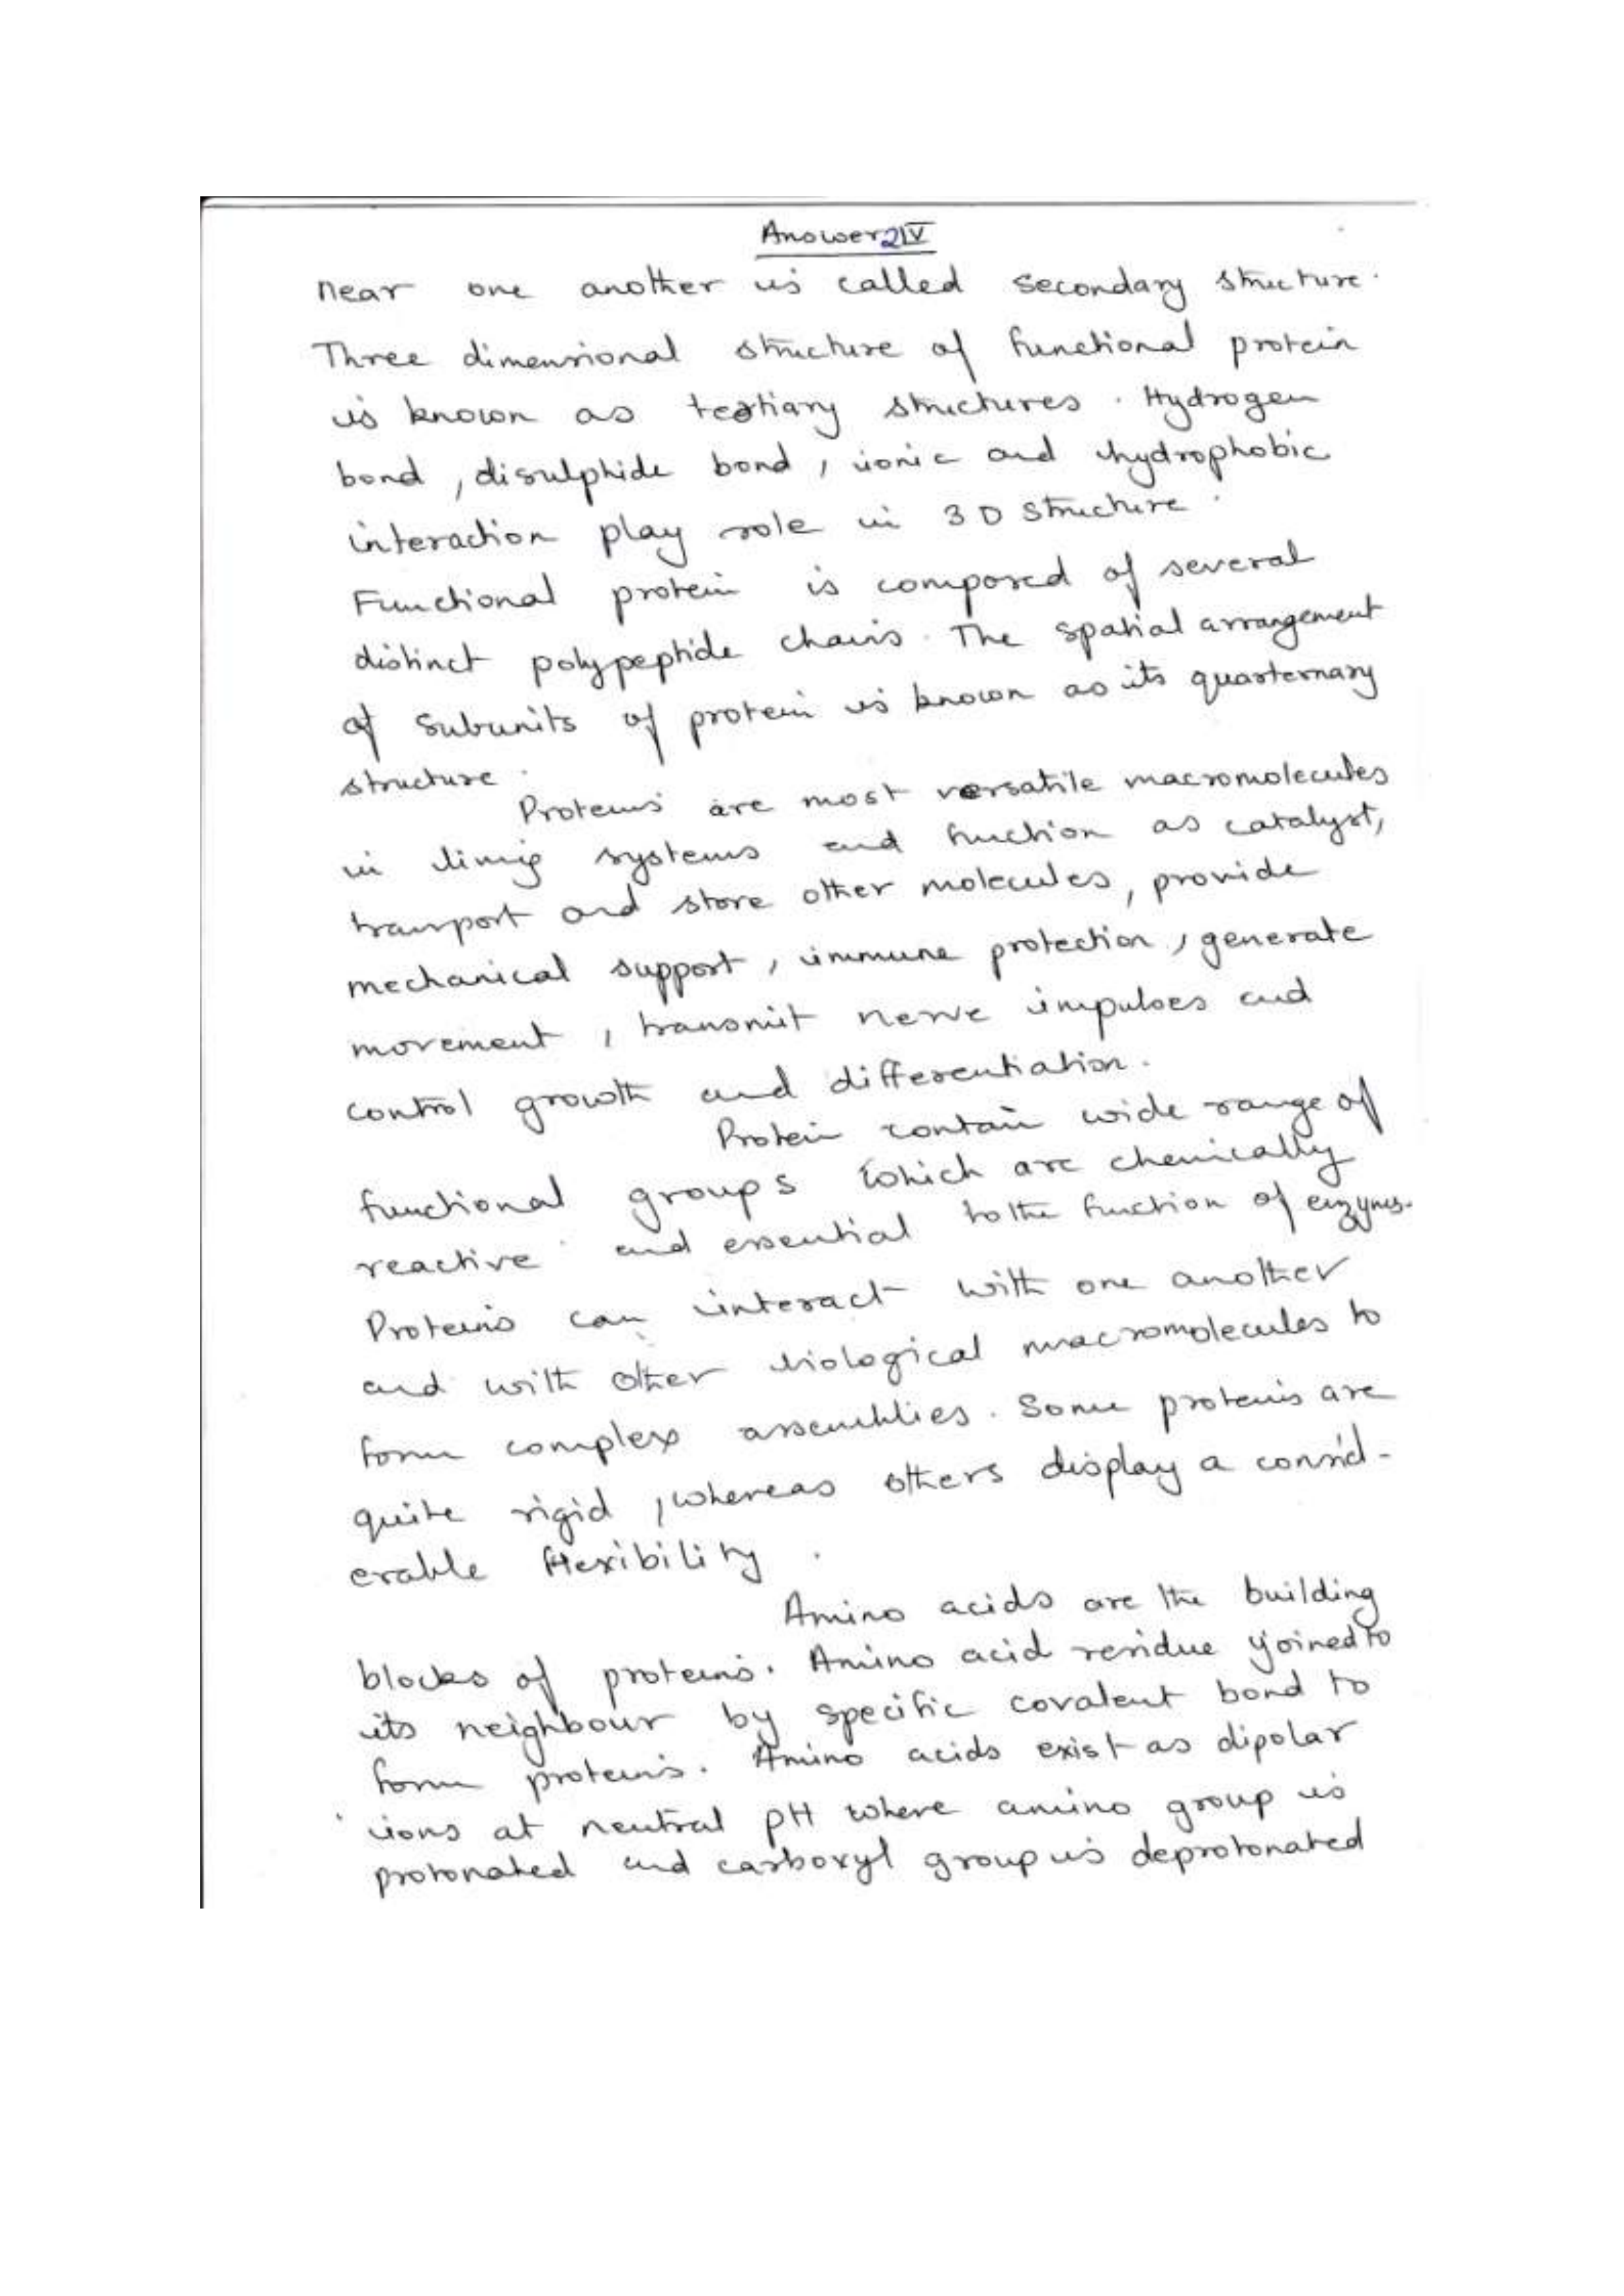 Answer 2 IV
near one another is called secondary structure.
Three dimensional structure of functional protein
is known as tertiary structures. Hydrogen
bond, disulphide bond, ionic and hydrophobic
interaction play role in 3D structure.
Functional protein is composed of several
distinct polypeptide chains. The spatial arrangement
of subunits of protein is known as its quarternary
structure.
Proteins are most versatile macromolecules
in living systems and function as catalyst,
transport and store other molecules, provide
mechanical support, immune protection, generate
movement, transmit nerve impulses and
control growth and differentiation.
Protein contain wide range of
functional groups which are chemically
reactive and essential to the function of enzymes.
Proteins can interact with one another
and with other biological macromolecules to
form complex assemblies. Some proteins are
quite rigid, whereas others display a consid-
erable flexibility.
Amino acids are the building
blocks of proteins. Amino acid residue joined to
its neighbour by specific covalent bond to
form proteins. Amino acids exist as dipolar
ions at neutral pH where amino group is
protonated and carboxyl group is deprotonated